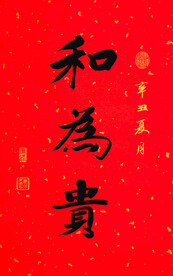 和為貴
辛丑夏月